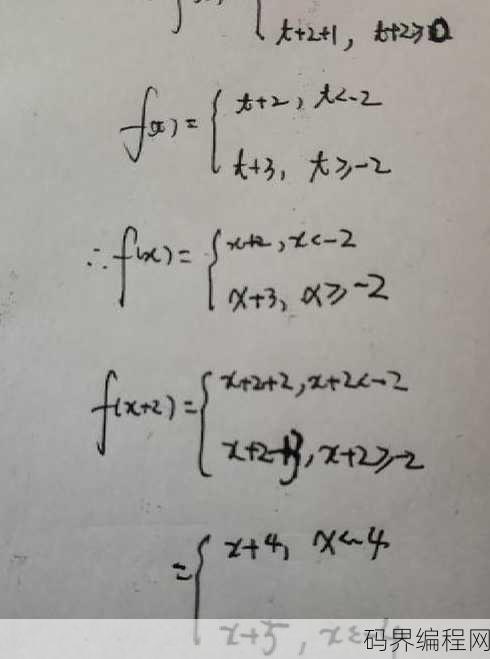 t+2+1, t+2≥0
f(x)= { t+2, t<-2
t+3, t≥-2
∴f(x)= { x+2, x<-2
x+3, x≥-2
f(x+2)= { x+2+2, x+2<-2
x+2+3, x+2≥-2
= { x+4, x<-4
x+5, x≥
码界编程网